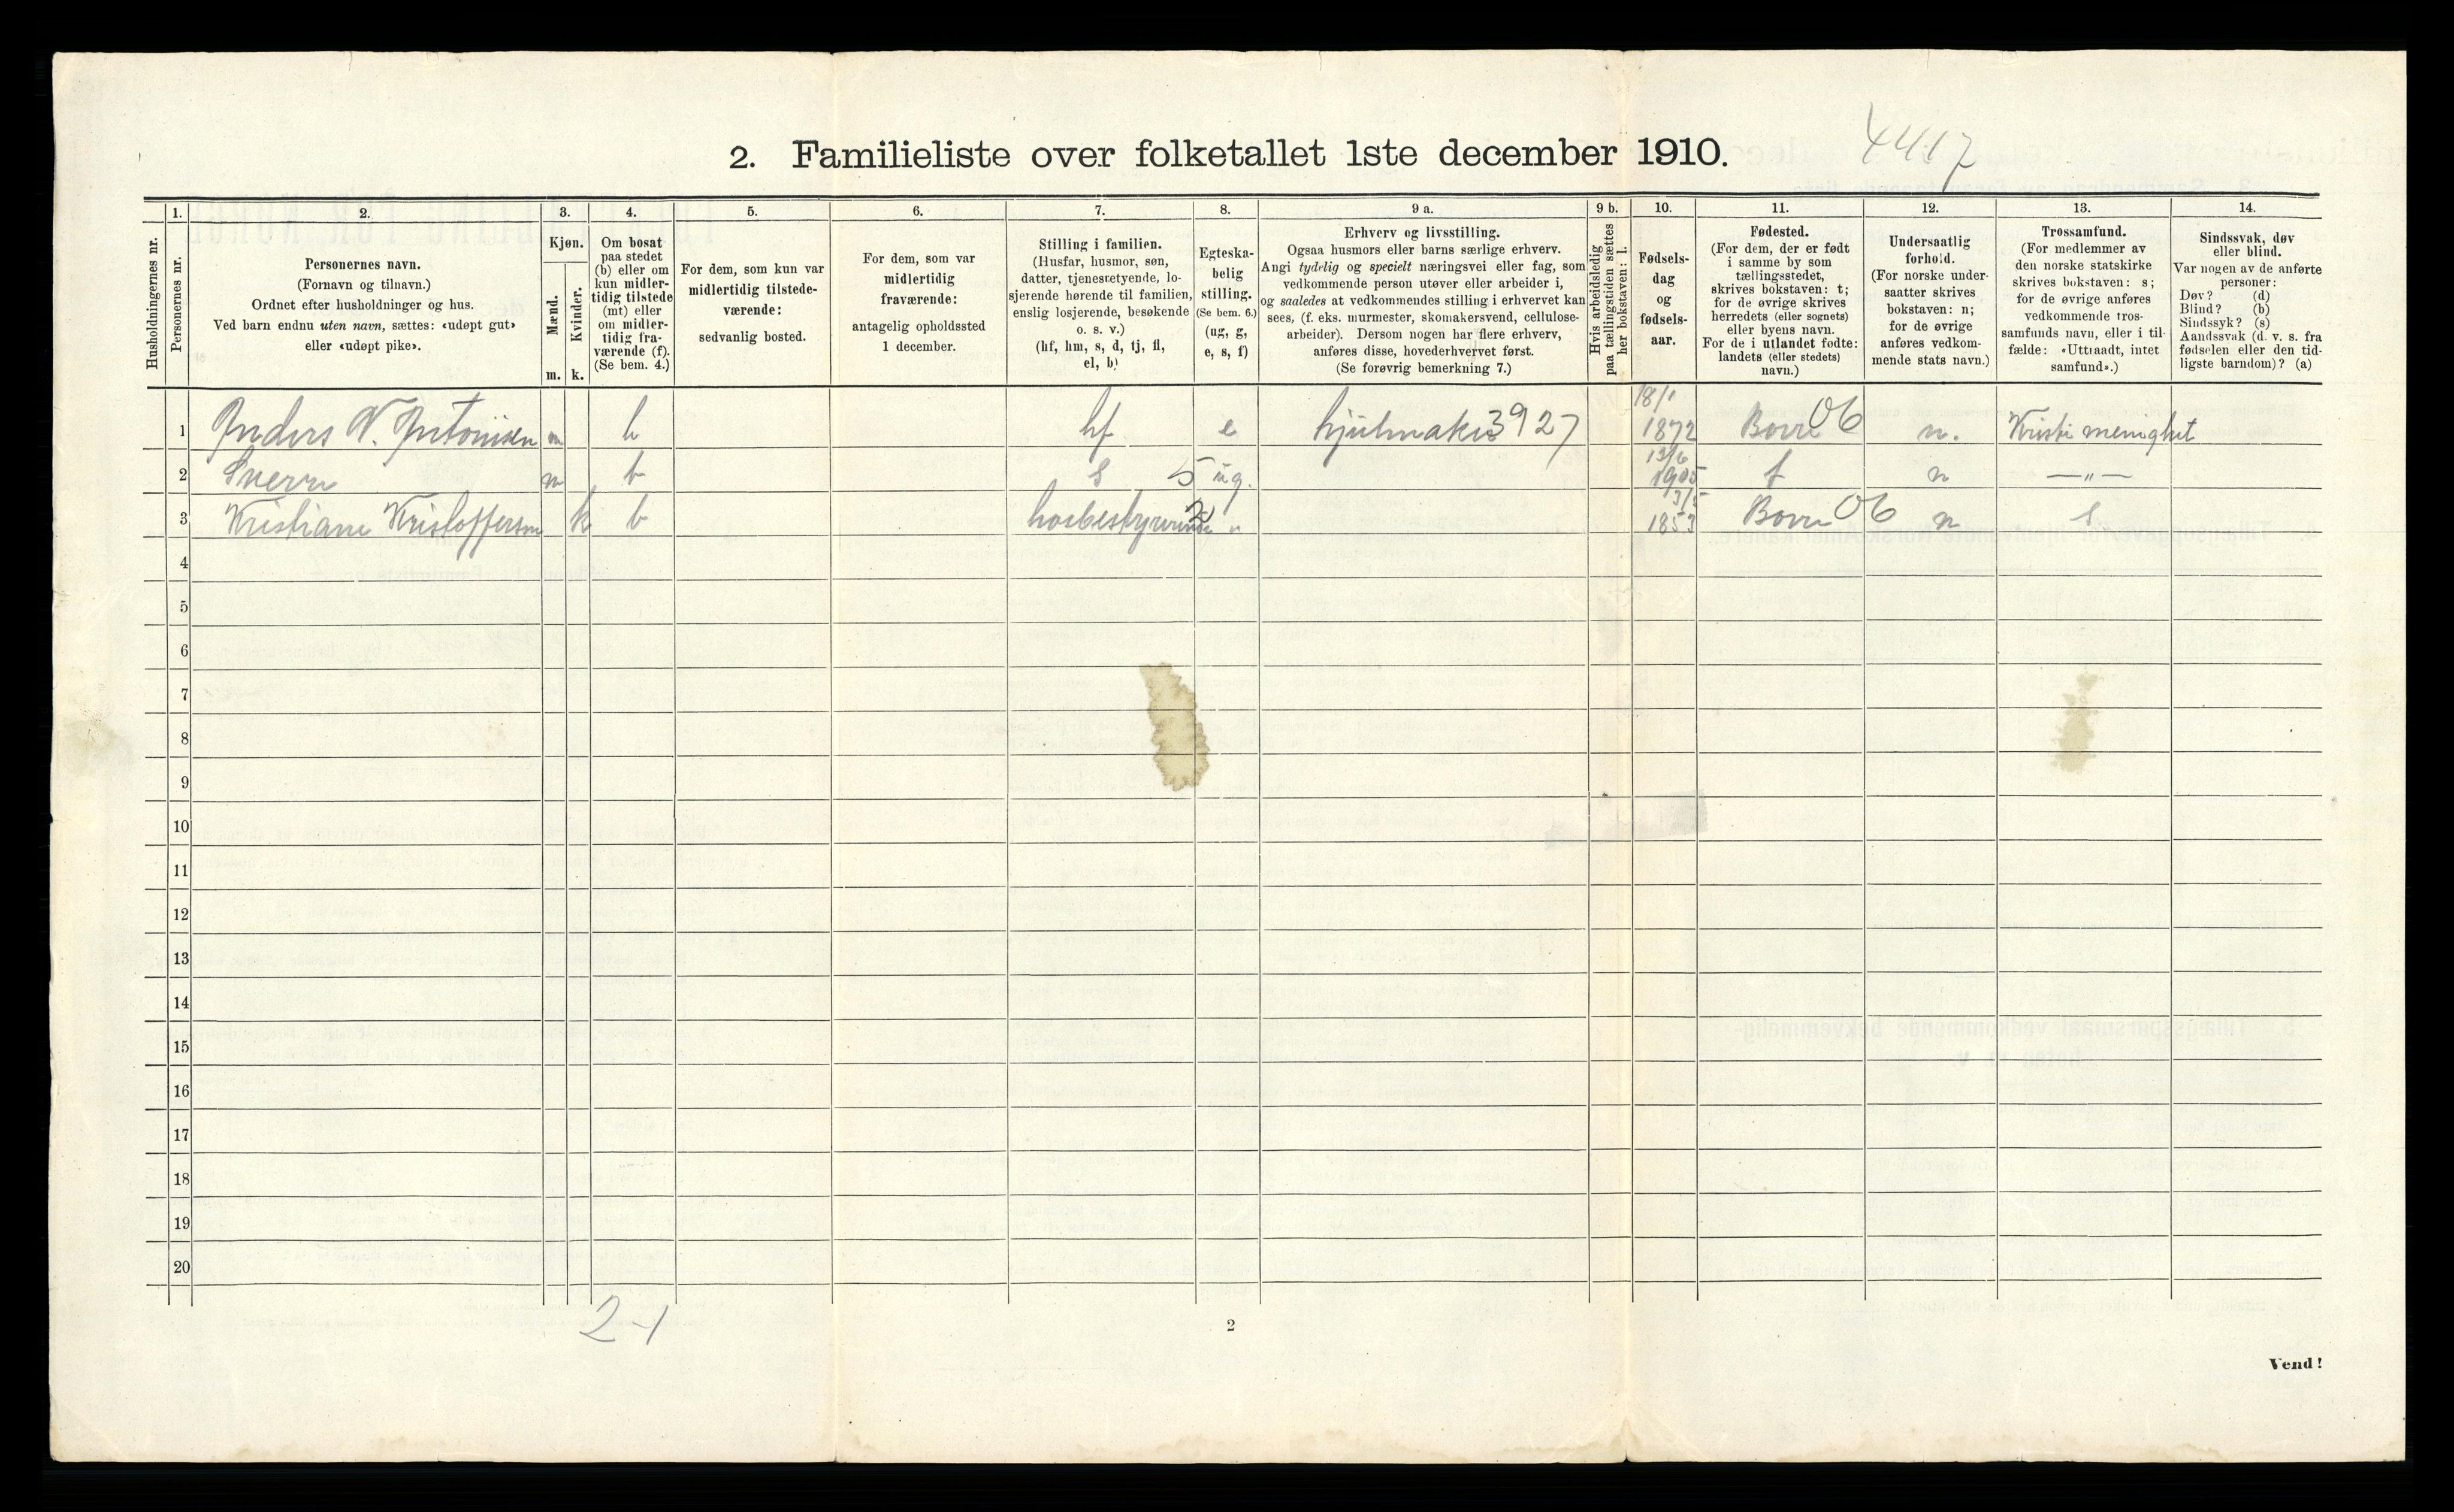 4417
2. Familieliste over folketallet 1ste december 1910.
Husholdningernes nr.
1. Personernes nr.
2. Personernes navn.
(Fornavn og tilnavn.)
Ordnet efter husholdninger og hus.
Ved barn endnu uten navn, sættes: «udøpt gut»
eller «udøpt pike».
3. Kjøn.
Mænd. m.
Kvinder. k.
4. Om bosat
paa stedet
(b) eller om
kun midler-
tidig tilstede
(mt) eller
om midler-
tidig fra-
værende (f).
(Se bem. 4.)
5. For dem, som kun var
midlertidig tilstede-
værende:
sedvanlig bosted.
6. For dem, som var
midlertidig
fraværende:
antagelig opholdssted
1 december.
7. Stilling i familien.
(Husfar, husmor, søn,
datter, tjenestetyende, lo-
sjerende hørende til familien,
enslig losjerende, besøkende
o. s. v.)
(hf, hm, s, d, tj, fl,
el, b)
8. Egteska-
belig
stilling.
(Se bem. 6.)
(ug, g,
e, s, f)
9 a. Erhverv og livsstilling.
Ogsaa husmors eller barns særlige erhverv.
Angi tydelig og specielt næringsvei eller fag, som
vedkommende person utøver eller arbeider i,
og saaledes at vedkommendes stilling i erhvervet kan
sees, (f. eks. murmester, skomakersvend, cellulose-
arbeider). Dersom nogen har flere erhverv,
anføres disse, hovederhvervet først.
(Se forøvrig bemerkning 7.)
9 b. Hvis arbeidsledig
paa tællingstiden sættes
her bokstaven: l.
10. Fødsels-
dag
og
fødsels-
aar.
11. Fødested.
(For dem, der er født
i samme by som
tællingsstedet,
skrives bokstaven: t;
for de øvrige skrives
herredets (eller sognets)
eller byens navn.
For de i utlandet fødte:
landets (eller stedets)
navn.)
12. Undersaatlig
forhold.
(For norske under-
saatter skrives
bokstaven: n;
for de øvrige
anføres vedkom-
mende stats navn.)
13. Trossamfund.
(For medlemmer av
den norske statskirke
skrives bokstaven: s;
for de øvrige anføres
vedkommende tros-
samfunds navn, eller i til-
fælde: «Uttraadt, intet
samfund».)
14. Sindssvak, døv
eller blind.
Var nogen av de anførte
personer:
Døv? (d)
Blind? (b)
Sindssyk? (s)
Aandssvak (d. v. s. fra
fødselen eller den tid-
ligste barndom)? (a)
1 Anders N. Antonisen m b hf e hjulmaker 3927 18/1 1872 Borre 06 n. Kristi menighet
2 Sverre m b s 5 ug. 13/6 1905 t n —„—
3 Kristiane Kristoffersen k b husbestyrerinde 2 „ 13/5 1853 Borre 06 n s
4
5
6
7
8
9
10
11
12
13
14
15
16
17
18
19
20
2-1
2
Vend!